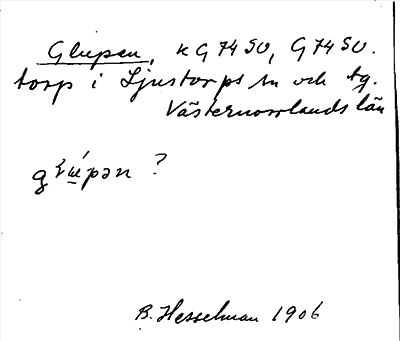 Glupen, k G 74 SV, G 74 SV.
torp i Ljustorps sn och tg.
Västernorrlands län
?
B. Hesselman 1906